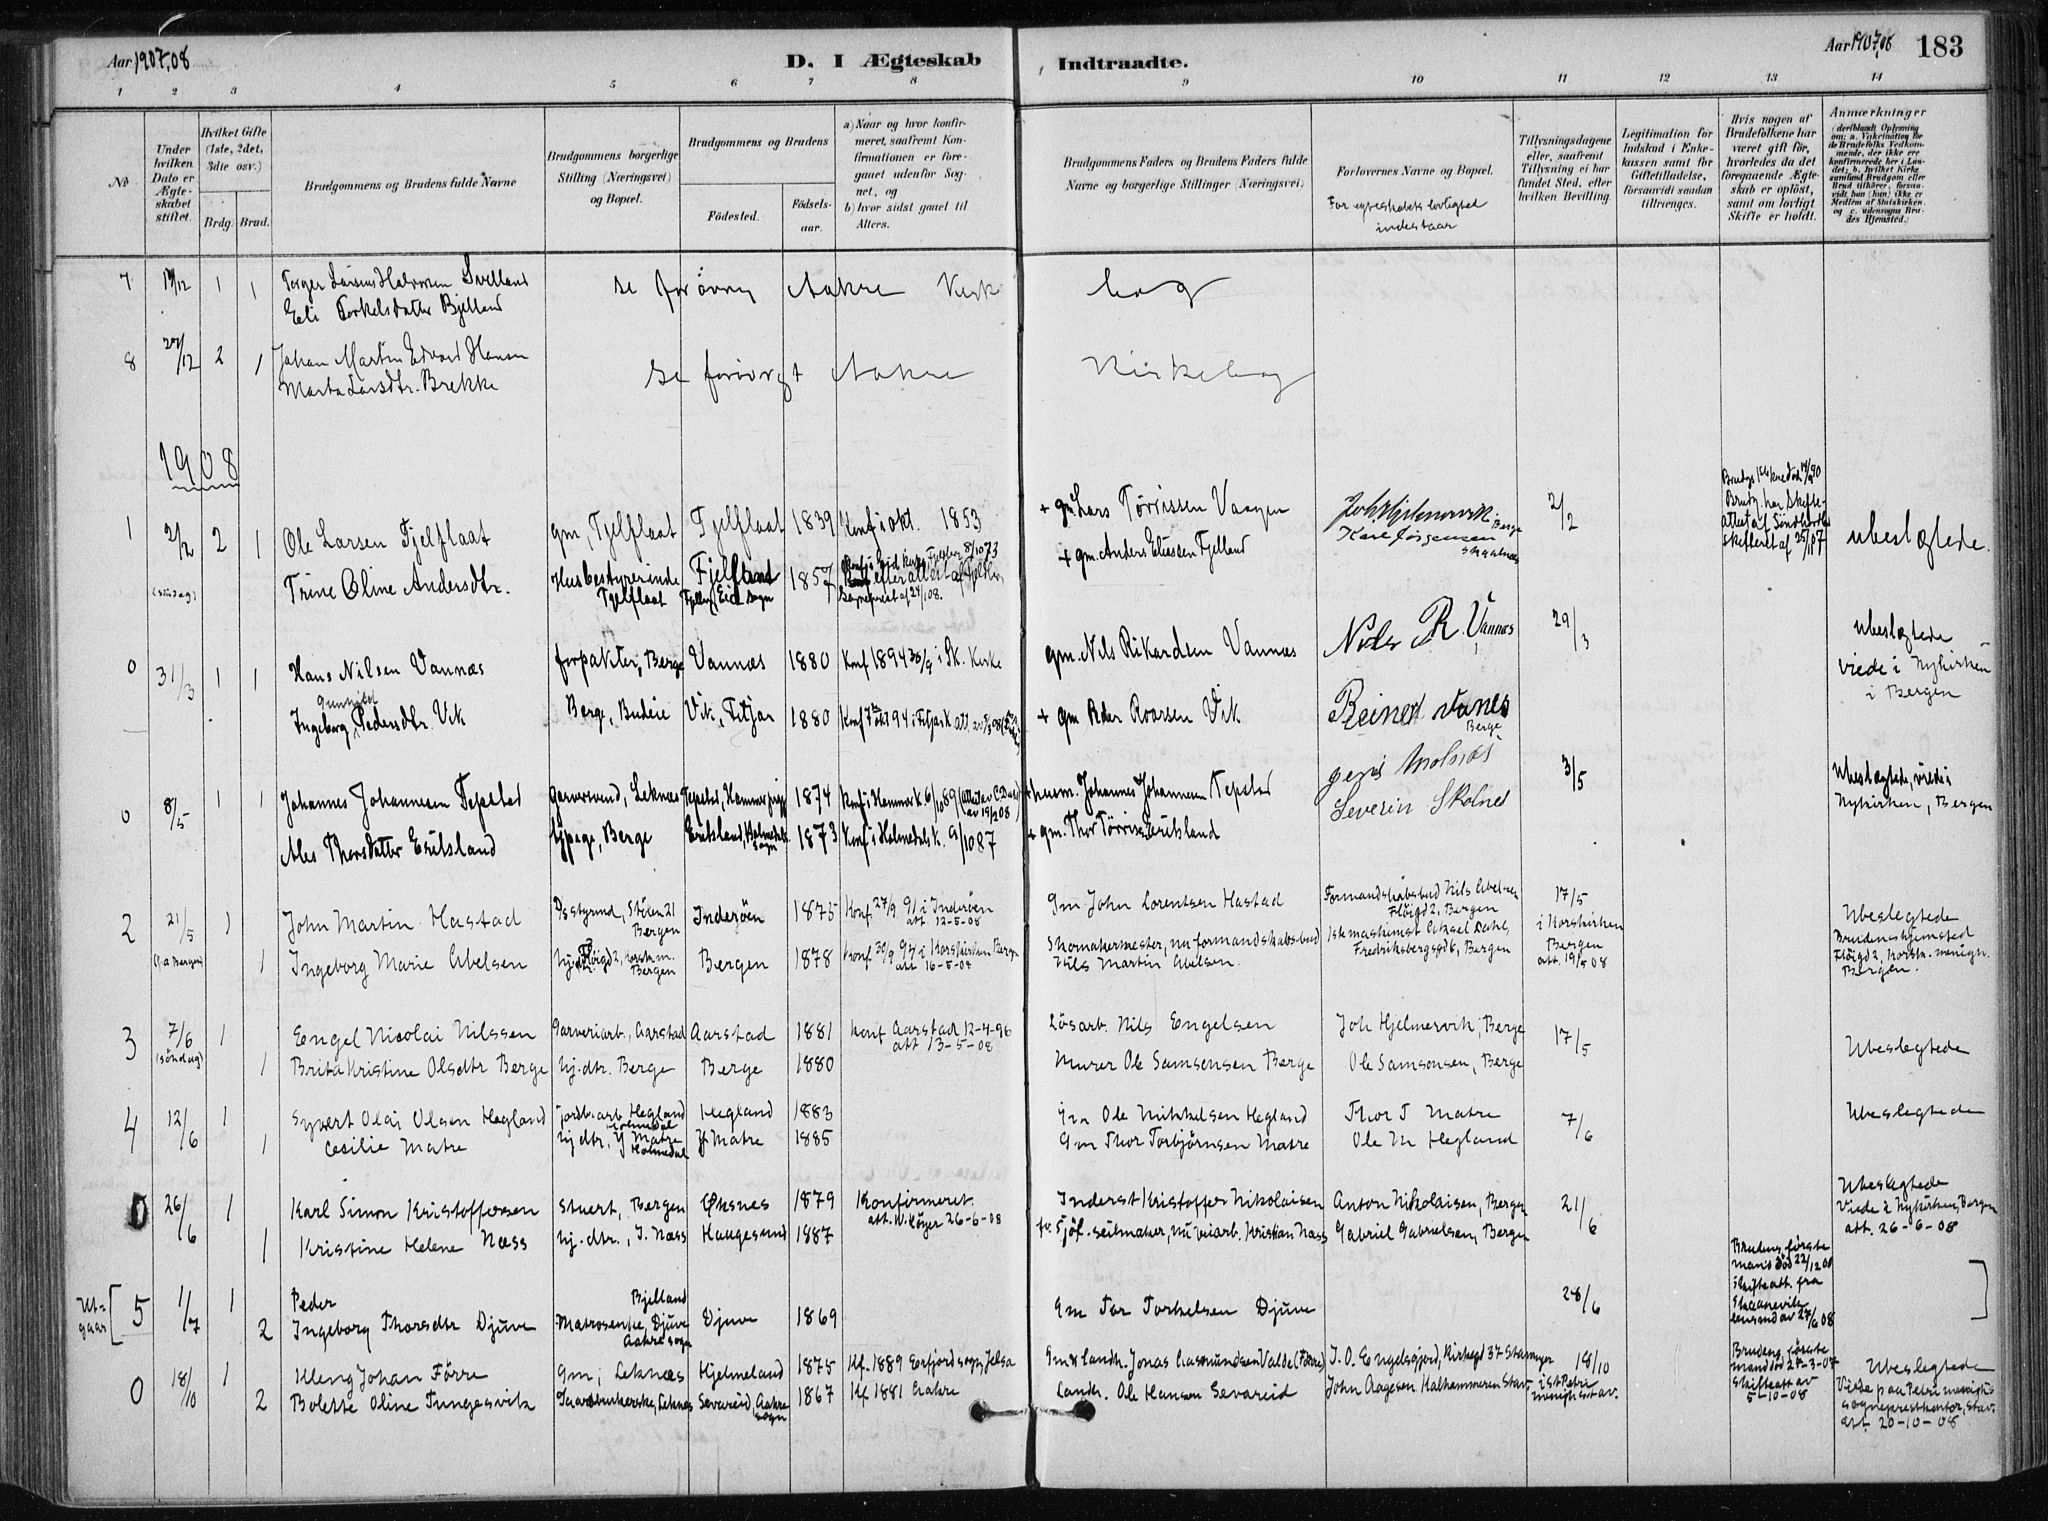 Aar 1907,08
D. I Ægteskab
Indtraadte.
Aar 1907,08
183
1 2 3 4 5 6 7 8 9 10 11 12 13 14
№
Under hvilken Dato er Ægteskabet stiftet.
Hvilket Gifte (1ste, 2det, 3die osv.)
Brdg. Brud.
Brudgommens og Brudens fulde Navne
Brudgommens borgerlige Stilling (Næringsvei) og Bopæl.
Brudgommens og Brudens
Fødested.
Fødselsaar.
a) Naar og hvor konfirmeret, saafremt Konfirmationen er foregaaet udenfor Sognet, og
b) hvor sidst gaaet til Alters.
Brudgommens Faders og Brudens Faders fulde Navne og borgerlige Stillinger (Næringsvei)
Forlovernes Navne og Bopæl.
For egteskabets lovlighed
indestaar
Tillysningsdagene eller, saafremt Tillysning ei har fundet Sted, efter hvilken Bevilling.
Legitimation for Indskud i Enkekassen samt for Giftetilladelse, forsaavidt saadan tiltrænges.
Hvis nogen af Brudefolkene har været gift før, hvorledes da det foregaaende Ægteskab er opløst, samt om lovligt Skifte er holdt.
Anmærkninger
(deriblandt Oplysning om: a. Vakcination for de Brudefolks Vedkommende, der ikke ere konfirmerede her i Landet; b. hvilket Kirkesamfund Brudgom eller Brud tilhører, forsaavidt han (hun) ikke er Medlem af Statskirken, og c. udensogns Brudes Hjemsted.)
7 1 1 Torger Larsius Halvorsen Svelland se forøvrig Aakre Kirkebog
Eli Torkelsdatter Bjelland
8 27/12 2 1 Johan Martin Edvard Hansen se forøvrigt Aakre Kirkebog
Marta Larsdtr. Brekke
1908
1 2/2 2 1 Ole Larsen Fjelflaat gm, Fjelflaat Fjelflaat 1839 Konf i okt. 1853 + gm Lars Tørrissen Vaagen Joh Hjelmervik, Berge 2/2 ubeslægtede.
(søndag) Trine Oline Andersdtr. Husbestyrerinde Fjelflaat 1857 + gm. Anders Eliassen Fjelland Karl Jørgensen
0 31/3 1 1 Hans Nilsen Vannæs forpakter, Berge Vannæs 1880 Konf 1894 30/9 i Sk. Kirke gm. Nils Rikardsen Vannæs Nils R Vannæs 29/3 ubeslægtede
viede i Nykirken
i Bergen
Ingeborg Gunhild Pedersdtr. Vik Berge, Budeie Vik, Fitjar 1880 + gm Peder Roarsen Vik Reinert Vanes
Berge
0 8/5 1 1 Johannes Johannesen Tepstad Garversvend, Leknes Tepstad, Hammer 1874 + husm. Johannes Johannesen Tepstad 3/5 ubeslægtede, viede i
Nykirken, Bergen
Ales Thorsdatter Eritsland Berge Eritsland, Holmedals sogn 1873 Konf i Holmedals k. 9/10 87 + gm. Thor Tørrisen Eritsland Severin Skolnes
2 21/5 1 John Martin Hastad Bergen Inderøen 1875 Konf. 27/9 91 i Inderøen
att 12-5-08 Gm John Lorentsen Hastad Formandskabsbud Nils Abelsen
Fløigd 2, Bergen 17/5 Ubeslegtede
(i Bergen) 1 Ingeborg Marie Abelsen Fløigd 2, Korsk.m. Bergen Bergen 1878 Konf 30/9 94 i Korskirken Bergen
att 16-5-08 Skomakermester, nu formandskabsbud
Nils Martin Abelsen. Aksel Dahl,
Fredriksbergsgd 6, Bergen i Korskirken
Bergen
att. 19/5 08 Brudens hjemsted
Fløigd 2, Korsk. menigh.
Bergen.
3 7/6 1 Engel Nicolai Nilssen Garveriarb, Aarstad Aarstad 1881 Konf Aarstad 12-4-96
att 13-5-08 Løsarb. Nils Engelsen Joh Hjelmervik, Berge 17/5 Ubeslegtede
(søndag) 1 Brita Kristine Olsdtr Berge hj.dtr. Berge Berge 1880 Murer Ole Samsonsen Berge Ole Samsonsen, Berge
4 12/6 1 Syvert Olai Olsen Hegland jordbr.arb Hegland
Holmedal Hegland 1883 Gm Ole Mikkelsen Hegland Thor T Matre 7/6 Ubeslegtede
1 Cecilie Matre hj.dtr, Y Matre
Holmedal Y Matre 1885 Gm Thor Torbjørnsen Matre Ole M Hegland
0 26/6 1 Karl Simon Kristoffersen Stuert, Bergen Øksnes 1879 Konfirmeret
att. 26-6-08 Inderst Kristoffer Nikolaisen Anton Nikolaisen, Bergen 21/6 Ubeslegtede
Viede i Nykirken, Bergen
att. 26-6-08
1 Kristine Helene Næss hj.dtr., I. Næss Haugesund 1887 fv. Sjøf. seilmaker, nu veiarb. Kristian Næss Gabriel Gabrielsen, Bergen
Utgaar 5 1/7 1 Peder Bjelland 28/6 Brudens første
mand død 22/12 00
Skifteatt. fra
Skaanevik
lensmd av 27/6 08
2 Ingeborg Thorsdtr Djuve Matrosenke, Djuve
Aakre sogn Djuve 1869 Gm Tor Torkelsen Djuve
0 18/10 1 Kleng Johan Førre Gm, Leknæs Hjelmeland 1875 Kf. 1889 Erfjord sogn, Jelsa Gm & landh. Jonas Aasmundsen Valde (Førre) J. O. Engelsgjerd, Kirkegd 37 Stavanger 18/10 Brudens første
mand død 27-3-07
Skifteatt av
5-10-08 Ubeslegtede
2 Bolette Oline Tungesvik Gaardbrukerske, Leknes Sevareid, Aakre
sogn 1867 Kf 1881 Aakre Landh. Ole Hansen Sevareid John Aagesen Kalhammeren Stav. i St Petri
menigh. Stav. Viede paa Petri menigh.
sogneprestkontor, Stav.
att. 20-10-08